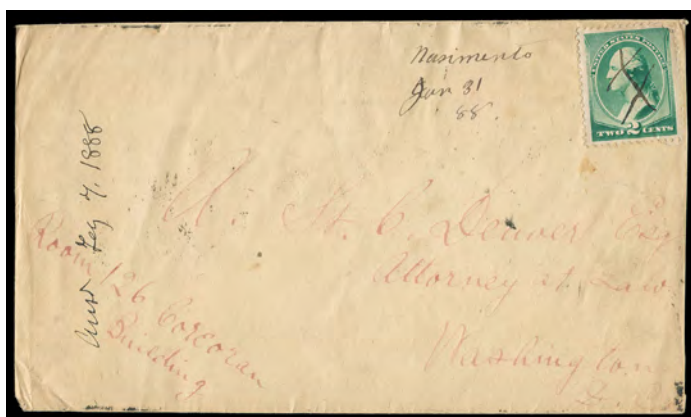 Nasimento
Jan 31
88.
UNITED STATES POSTAGE
TWO 2 CENTS
Feb 7, 1888
M. St. C. Denver Esq
Attorney at Law
Washington
D.C.
Room 126 Corcoran
Building